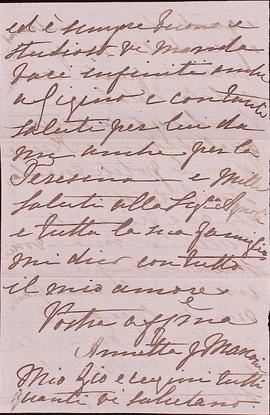 ed è sempre buona e
studiosa. Vi manda
baci infiniti anche
a Gigino e con tanti
saluti per lui da
me anche per la
Teresina e mille
saluti alla Sig.ra
e tutta la sua famiglia
mi dico con tutto
il mio amore
Vostra aff.ma
Annetta
Mio Zio e cugini tutti
quanti vi salutano